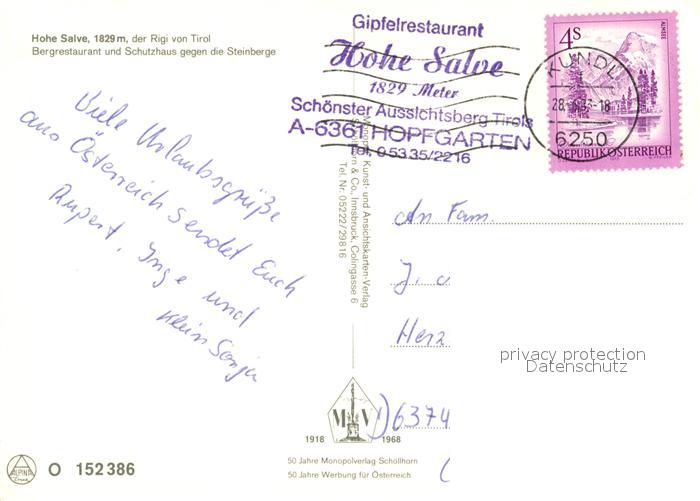 Hohe Salve, 1829 m, der Rigi von Tirol
Bergrestaurant und Schutzhaus gegen die Steinberge
Gipfelrestaurant
Hohe Salve
1829 Meter
Schönster Aussichtsberg Tirols
A-6361 HOPFGARTEN
Tel. 0 53 35/2216
4 S
ALMSEE
KUNDL
6250
REPUBLIK ÖSTERREICH
Viele Urlaubsgrüße
aus Österreich sendet Euch
Rupert, Inge und
klein Sonja
Kunst- und Ansichtskarten-Verlag
& Co., Innsbruck, Colingasse 6
Tel. Nr. 05222/29816
An Fam.
J. c
Herz
privacy protection
Datenschutz
6374
M V
1918 1968
50 Jahre Monopolverlag Schöllhorn
50 Jahre Werbung für Österreich
ALPINA
O 152 386